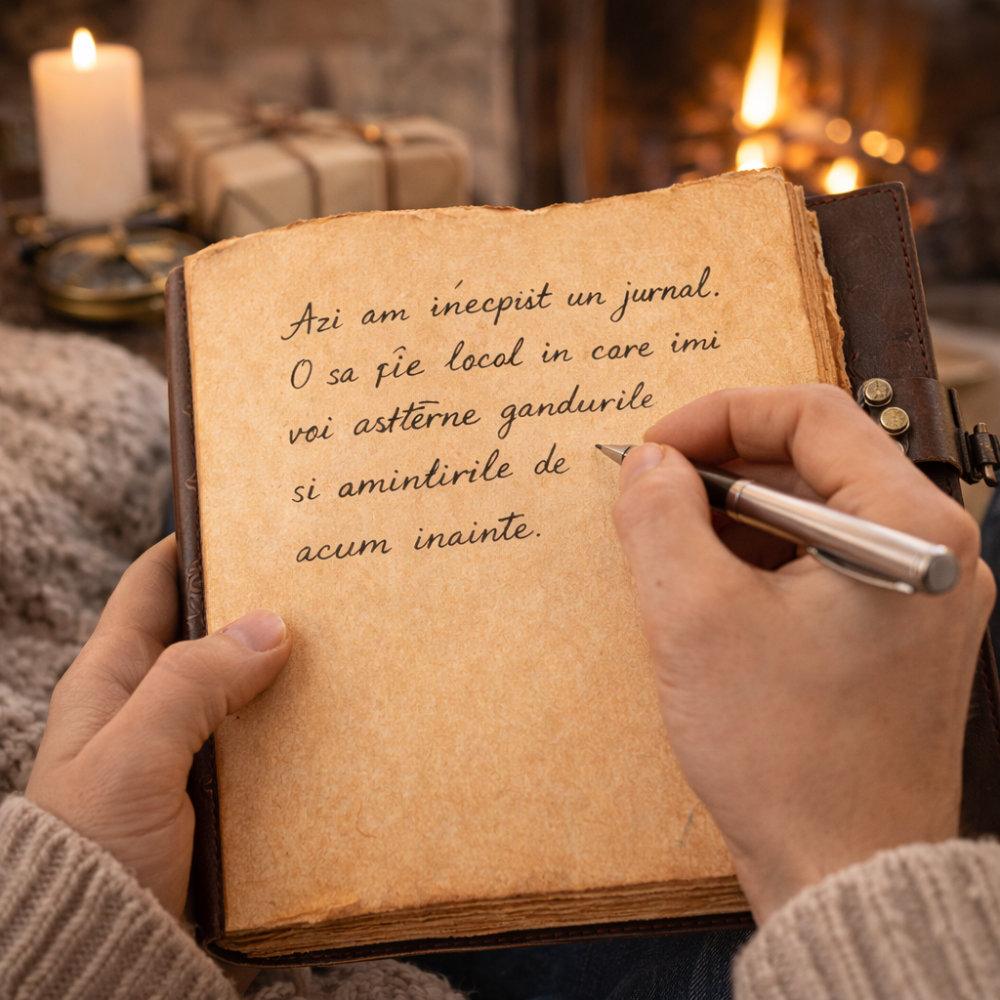 Azi am inecpist un jurnal.
O sa fie locol in care imi
voi astterne gandurile
si amintirile de
acum inainte.